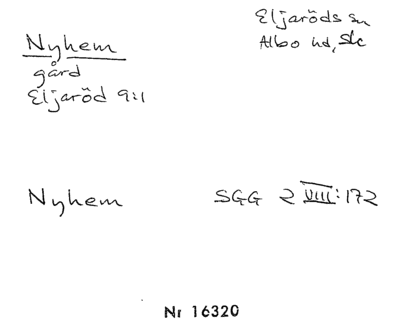 Nyhem
gård
Eljaröd 9:1
Eljaröds sn
Albo hd, Sk
Nyhem SGG 2 VIII:172
Nr 16320